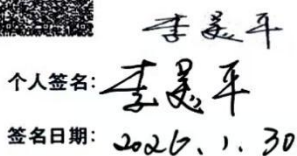 李美平
个人签名：李美平
签名日期：2026.1.30